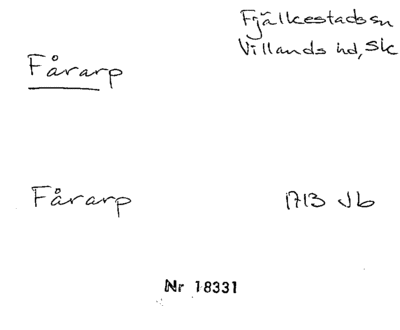 Fjälkestads sn
Villands hd, Sk
Fårarp
Fårarp 1713 Jb
Nr 18331